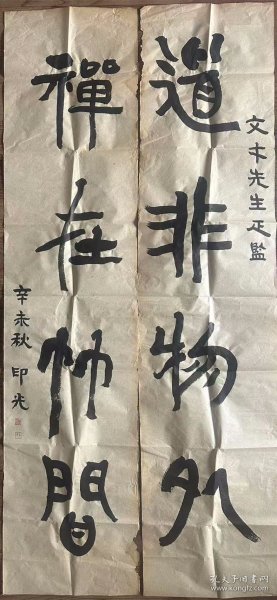 文才先生正監
道非物外
禪在竹間
辛未秋 印光
孔夫子旧书网